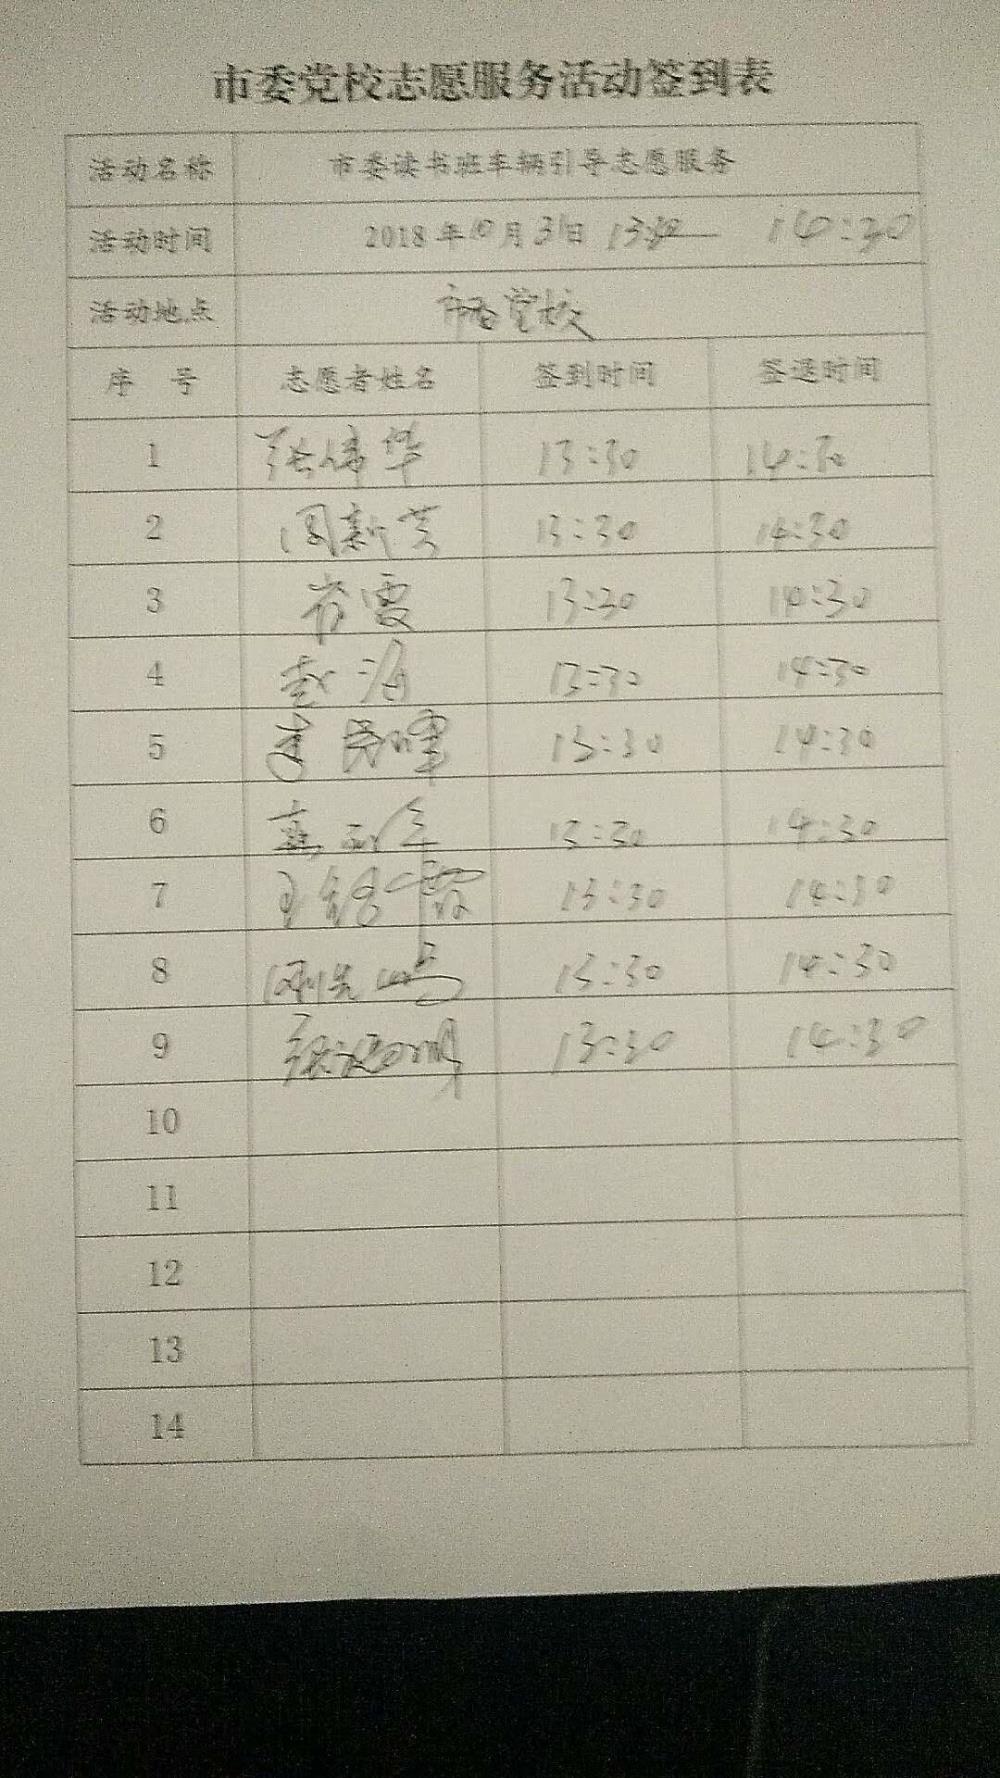 市委党校志愿服务活动签到表
活动名称 市委读书班车辆引导志愿服务
活动时间 2018年10月31日 13:30— 14:30
活动地点 市委党校
序 号 志愿者姓名 签到时间 签退时间
1 张伟华 13:30 14:30
2 周新芸 13:30 14:30
3 肖霞 13:30 14:30
4 赵海 13:30 14:30
5 13:30 14:30
6 13:30 14:30
7 13:30 14:30
8 13:30 14:30
9 13:30 14:30
10
11
12
13
14